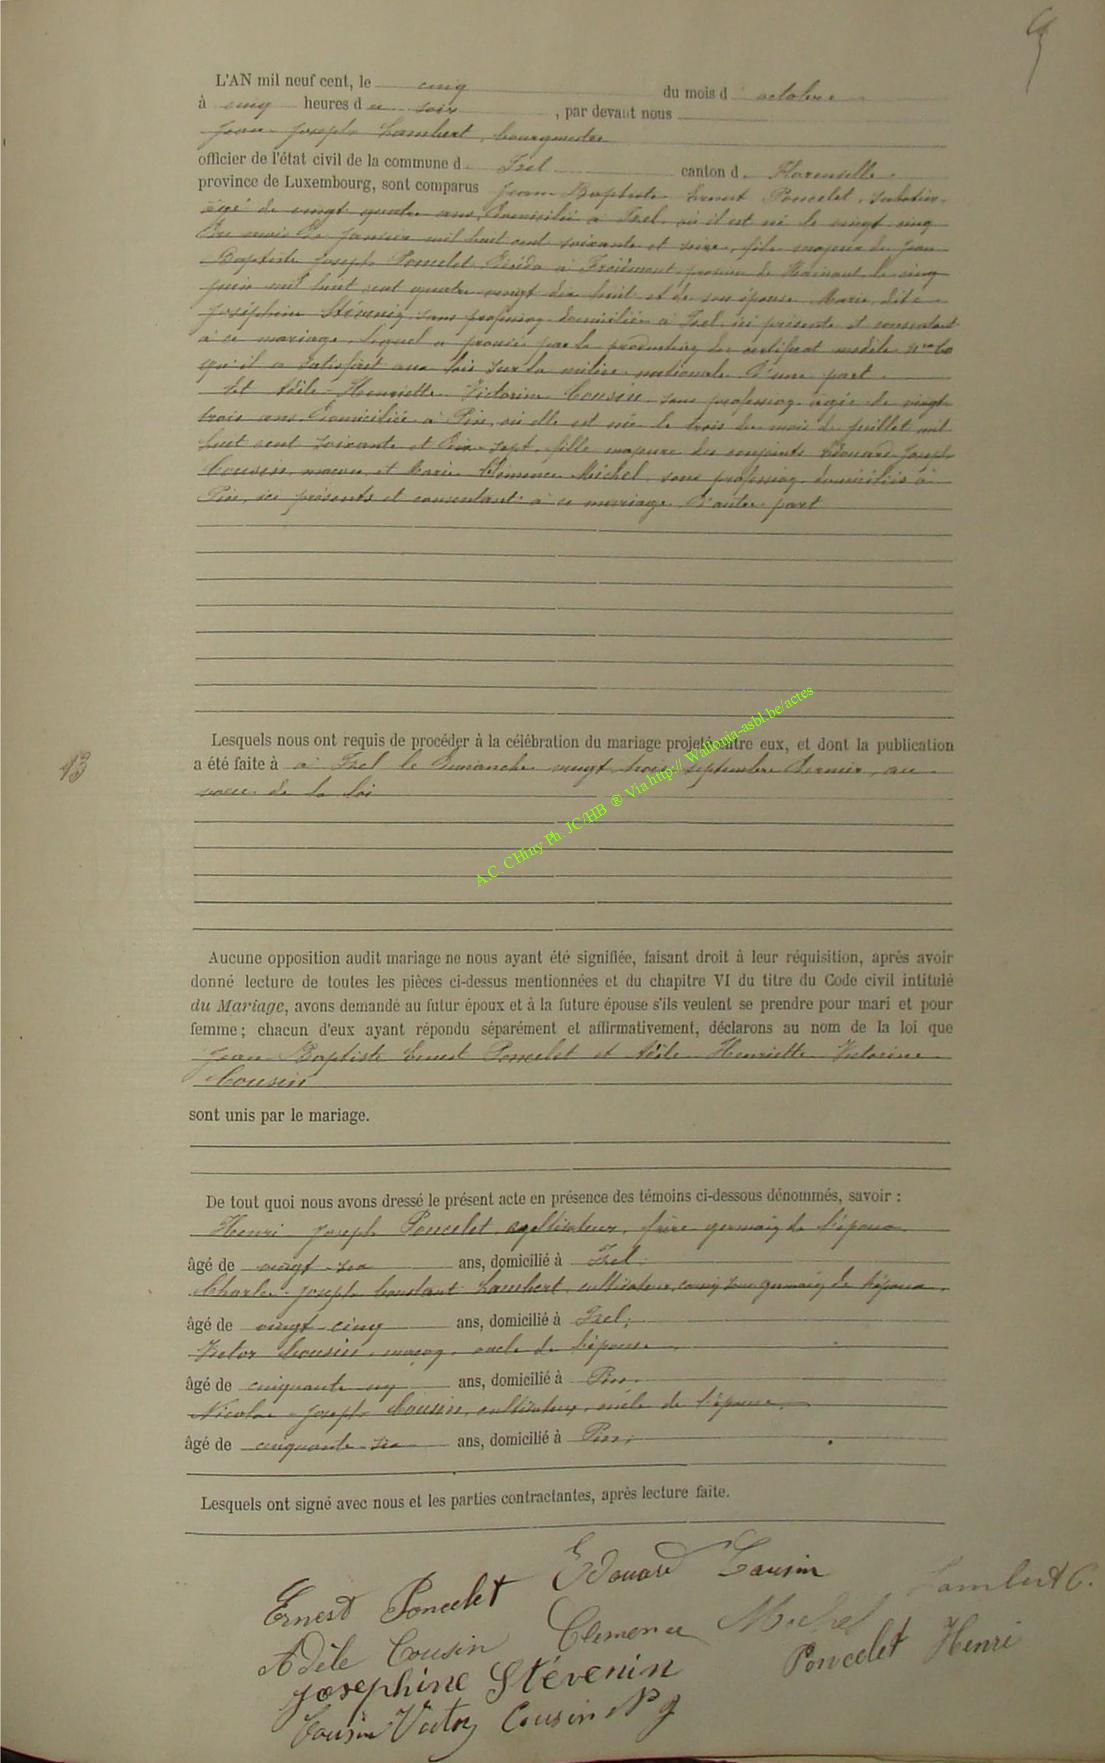 L'AN mil neuf cent, le cinq du mois d octobre
à cinq heures d u soir , par devant nous
Jean Joseph Lambert, bourgmestre
officier de l'état civil de la commune d Izel canton d Florenville
province de Luxembourg, sont comparus Jean Baptiste Ernest Poncelet, sabotier
âgé de vingt quatre ans, domicilié à Izel, où il est né le vingt cinq
du mois de janvier mil huit cent soixante et seize, fils majeur de Jean
Baptiste Joseph Poncelet décédé à Froidmont, province de Hainaut, le cinq
juin mil huit cent quatre vingt dix huit et de son épouse Marie, dite
Joséphine Stévenin, sans profession, domiciliée à Izel, ici présente et consentant
à ce mariage, lequel a prouvé par la production du certificat modèle
qu'il a satisfait aux lois sur la milice nationale. D'une part.
Et Adèle Henriette Victorine Cousin, sans profession, âgée de vingt
trois ans, domiciliée à Pin, où elle est née le trois du mois de juillet mil
huit cent soixante et dix sept, fille majeure des conjoints Edouard Joseph
Cousin, maçon, et Marie Clémence Michel, sans profession, domiciliés à
Pin, ici présents et consentant à ce mariage. D'autre part
Lesquels nous ont requis de procéder à la célébration du mariage projeté entre eux, et dont la publication
13
a été faite à à Izel le dimanche vingt trois septembre dernier, au
vœu de la loi
A.C. CHiny Ph. JC/HB ® Via http:// Wallonia-asbl.be/actes
Aucune opposition audit mariage ne nous ayant été signifiée, faisant droit à leur réquisition, après avoir
donné lecture de toutes les pièces ci-dessus mentionnées et du chapitre VI du titre du Code civil intitulé
du Mariage, avons demandé au futur époux et à la future épouse s'ils veulent se prendre pour mari et pour
femme ; chacun d'eux ayant répondu séparément et affirmativement, déclarons au nom de la loi que
Jean Baptiste Ernest Poncelet et Adèle Henriette Victorine
Cousin
sont unis par le mariage.
De tout quoi nous avons dressé le présent acte en présence des témoins ci-dessous dénommés, savoir :
Henri Joseph Poncelet, cultivateur, frère germain de l'époux
âgé de vingt six ans, domicilié à Izel
Charles Joseph Constant Lambert, cultivateur, cousin sous germain de l'époux,
âgé de vingt-cinq ans, domicilié à Izel;
Victor Cousin, maçon, oncle de l'épouse,
âgé de cinquante un ans, domicilié à Pin.
Nicolas Joseph Cousin, cultivateur, oncle de l'épouse,
âgé de cinquante six ans, domicilié à Pin;
Lesquels ont signé avec nous et les parties contractantes, après lecture faite.
Ernest Poncelet Edouard Cousin Lambert C.
Adèle Cousin Clemence Michel Poncelet Henri
Josephine Stévenin
Cousin Victor Cousin N J